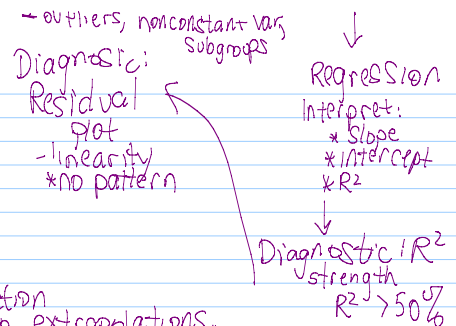 - outliers, nonconstant var,
subgroups
Diagnostic:
Residual
plot
- linearity
* no pattern
Regression
Interpret:
* Slope
* intercept
* R²
Diagnostic: R²
strength
R² > 50%
extrapolations.